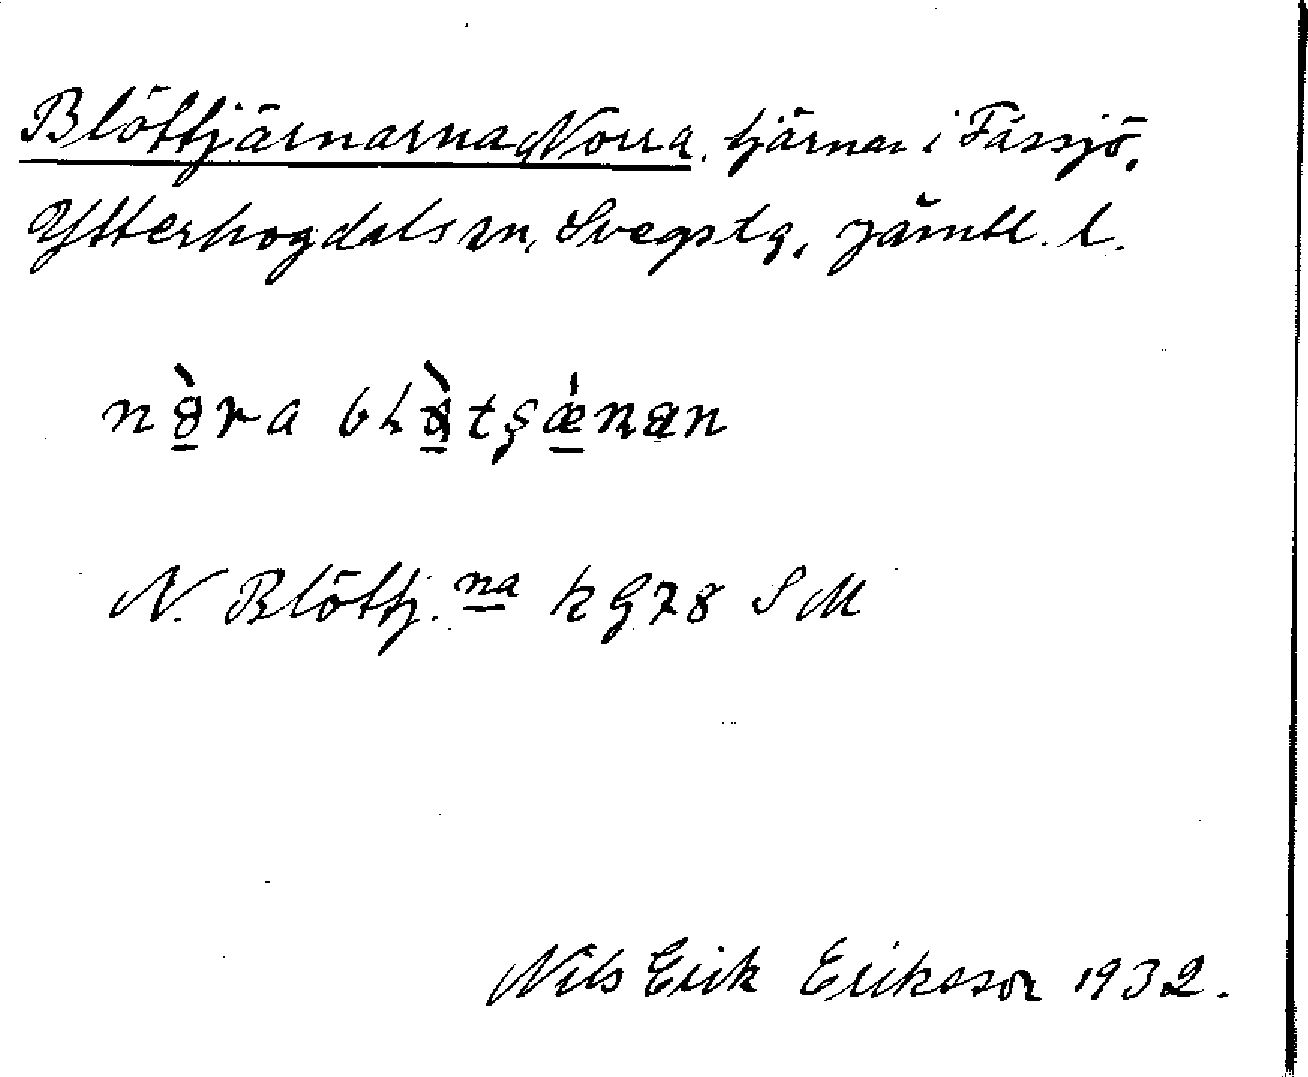 Blöttjärnarna, Norra. tjärnar i Fåssjö,
Ytterhogdals sn, Svegs tg, Jämtl. l.
nò̱ra bló̱tʂǽ̱nan
N. Blöttj. na kG78 SM
Nils Erik Eriksson 1932.